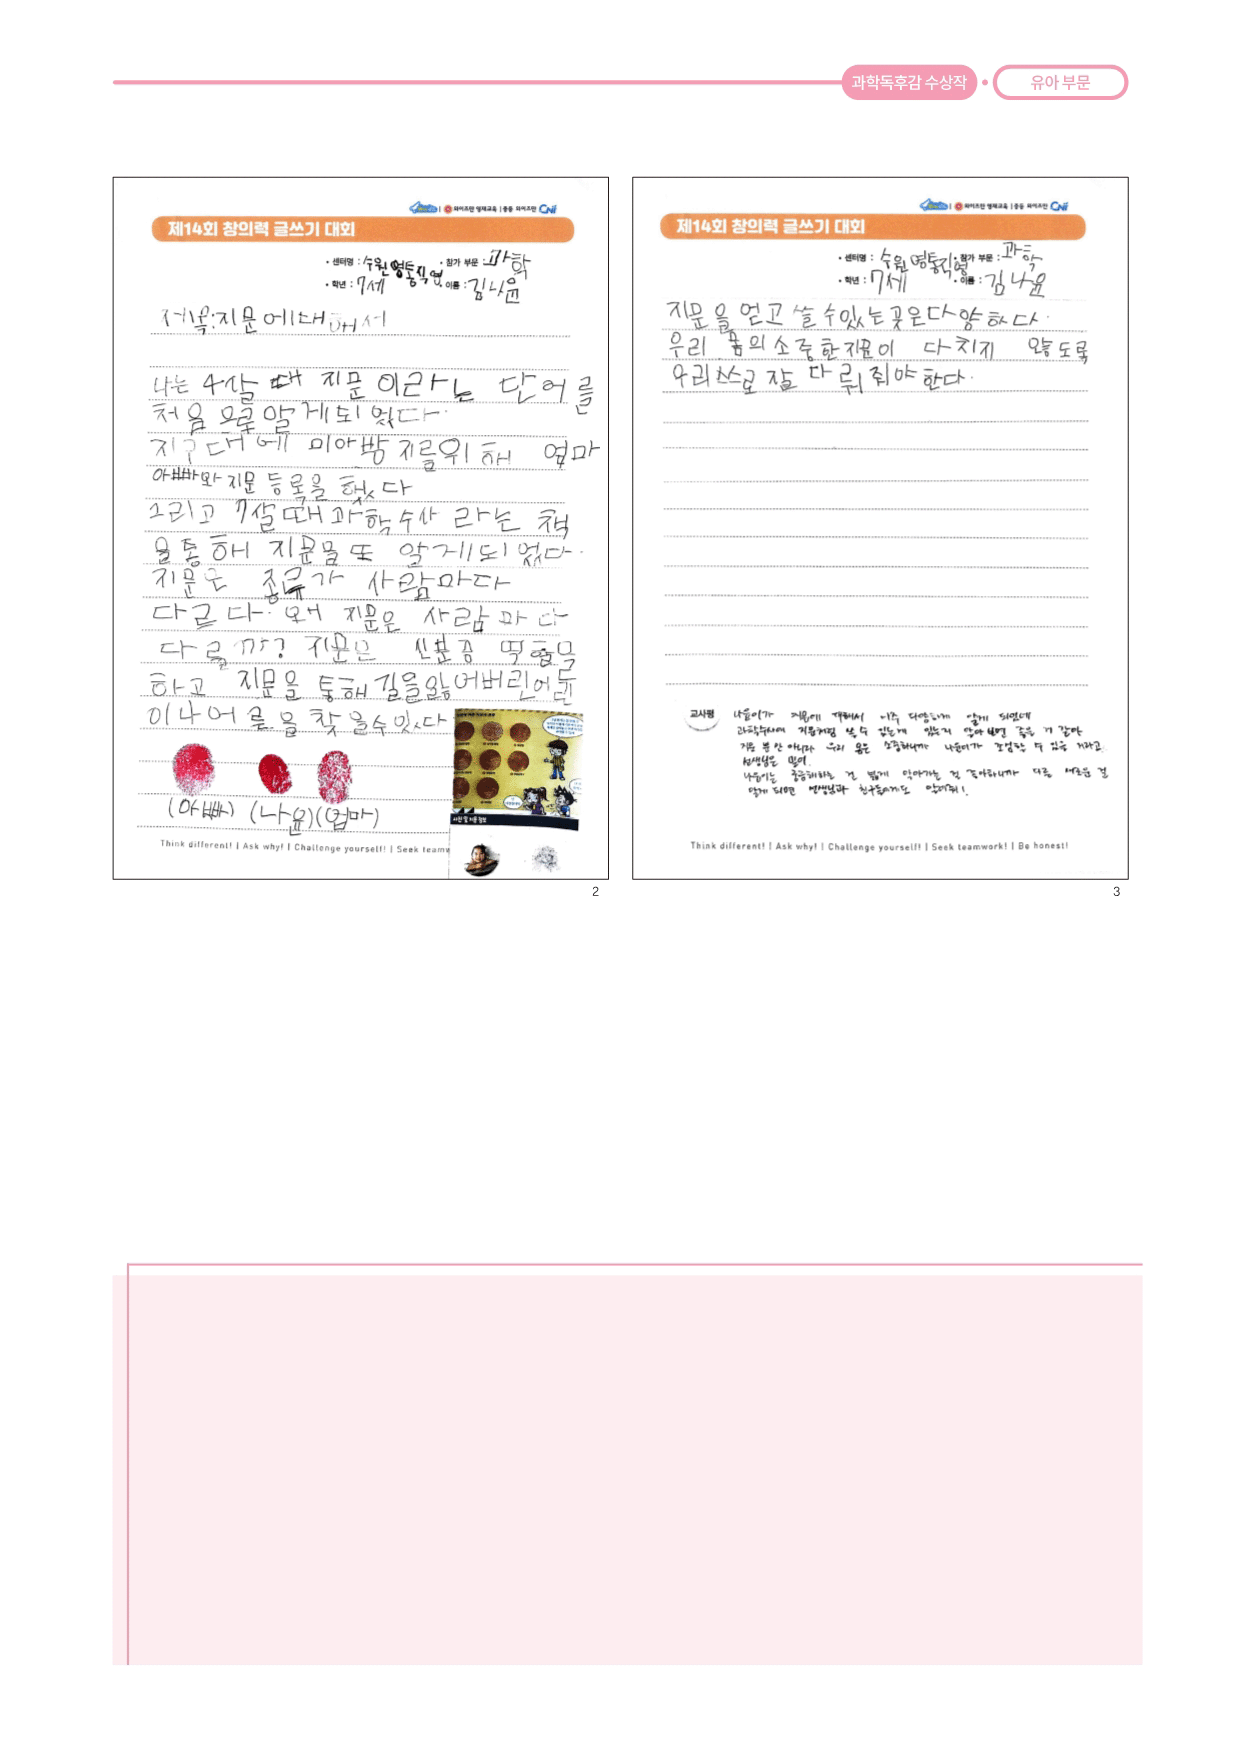 과학독후감 수상작
유아 부문
와이즈만 영재교육 | 중등 와이즈만 CNI
제14회 창의력 글쓰기 대회
• 센터명 : 수원영통직영 • 참가 부문 : 과학
• 학년 : 7세 • 이름 : 김나윤
제목:지문에대해서
나는 4살 때 지문이라는 단어를
처음으로알게되었다.
지구대에 미아방지를위해 엄마
아빠와지문 등록을 했다
그리고 7살때과학수사 라는 책
을통해 지문을또 알게되었다.
지문은 종류가 사람마다
다르다. 왜 지문은 사람마다
다를까? 지문은 신분증 역할을
하고 지문을 통해길을잃어버린어른
이나어를을 찾을수있다
(아빠) (나윤)(엄마)
Think different! | Ask why! | Challenge yourself! | Seek teamw
2
와이즈만 영재교육 | 중등 와이즈만 CNI
제14회 창의력 글쓰기 대회
• 센터명 : 수원영통직영 • 참가 부문 : 과학
• 학년 : 7세 • 이름 : 김나윤
지문을얻고쓸수있는곳은다양하다.
우리 몸의소중한지문이 다치지 않도록
우리스스로잘다뤄줘야한다.
교사평
나윤이가 지문에 대해서 아주 다양하게 알게 되었네
과학수사에 지문처럼 쓸 수 있는게 있는지 알아보면 좋을 거 같아
지문 뿐만 아니라 우리 몸은 소중하니까 나윤이가 조심할 수 있을 거라고
선생님은 믿어.
나윤이는 궁금해하는 걸 넓게 알아가는 걸 좋아하니까 다른 새로운 걸
알게 되면 선생님과 친구들에게도 알려줘!
Think different! | Ask why! | Challenge yourself! | Seek teamwork! | Be honest!
3